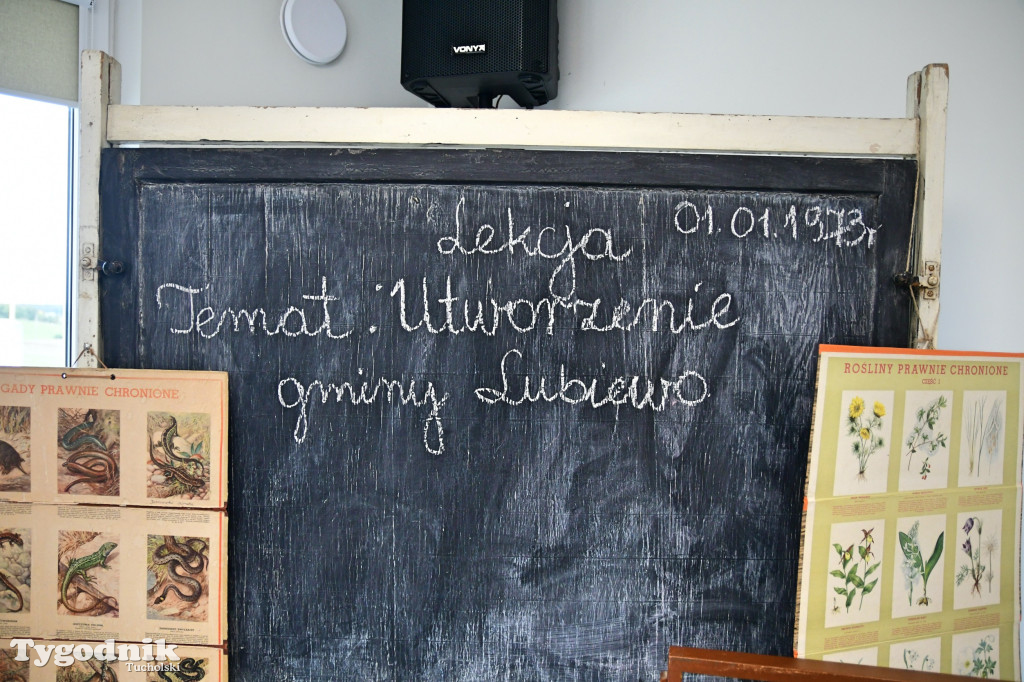 VONYX
Lekcja 01.01.1973r
Temat: Utworzenie
gminy Lubiewo
GADY PRAWNIE CHRONIONE
ROŚLINY PRAWNIE CHRONIONE
CZĘŚĆ I
Tygodnik
Tucholski